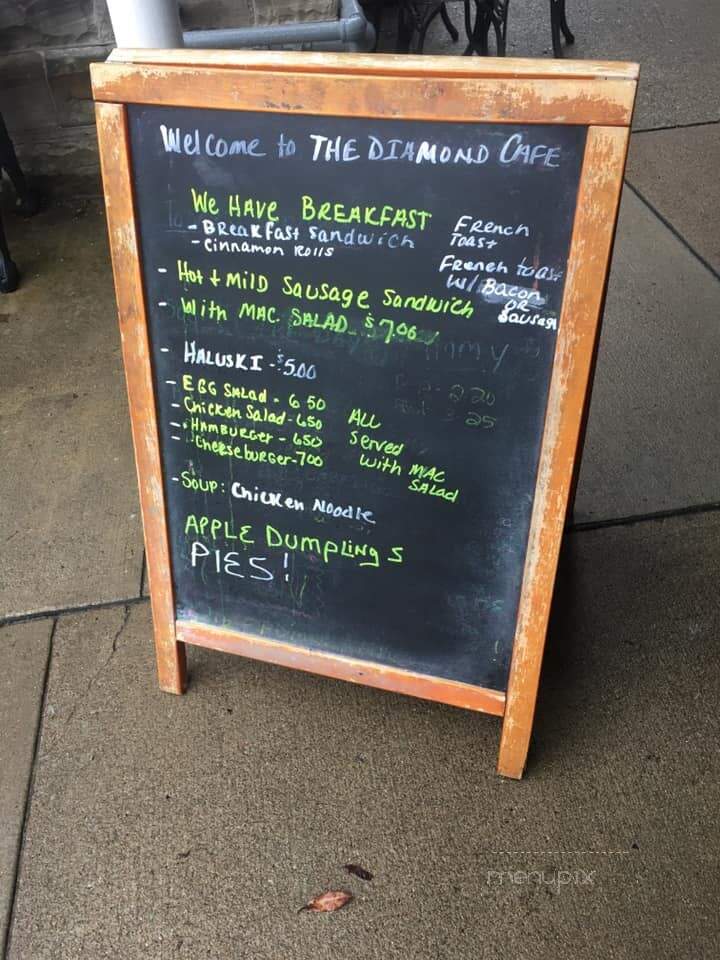 Welcome to THE DIAMOND CAFE
We HAVE BREAKFAST
- BREAKFast Sandwich
- Cinnamon Rolls
FRench
Toast
French toast
w/ Bacon
OR
Sausage
- Hot + MilD Sausage Sandwich
- With MAC. SALAD $7.00
- HALUSKI - $5.00
- EGG SALAD - 6 50
- Chicken Salad - 650
- HAMBURGER - 650
- Cheeseburger - 700
ALL
Served
with MAC
SALad
- SOUP: Chicken Noodle
APPLE DUMPLINGS
PIES!
menupix